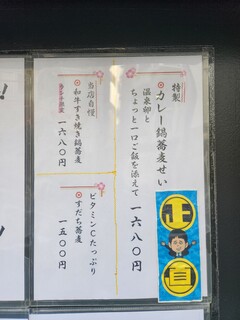 特製
カレー鍋蕎麦せいろ
温泉卵と
ちょっと一口ご飯を添えて
一六八〇円
当店自慢
和牛すき焼き鍋蕎麦
一六八〇円
ビタミンCたっぷり
すだち蕎麦
一五〇〇円
正直